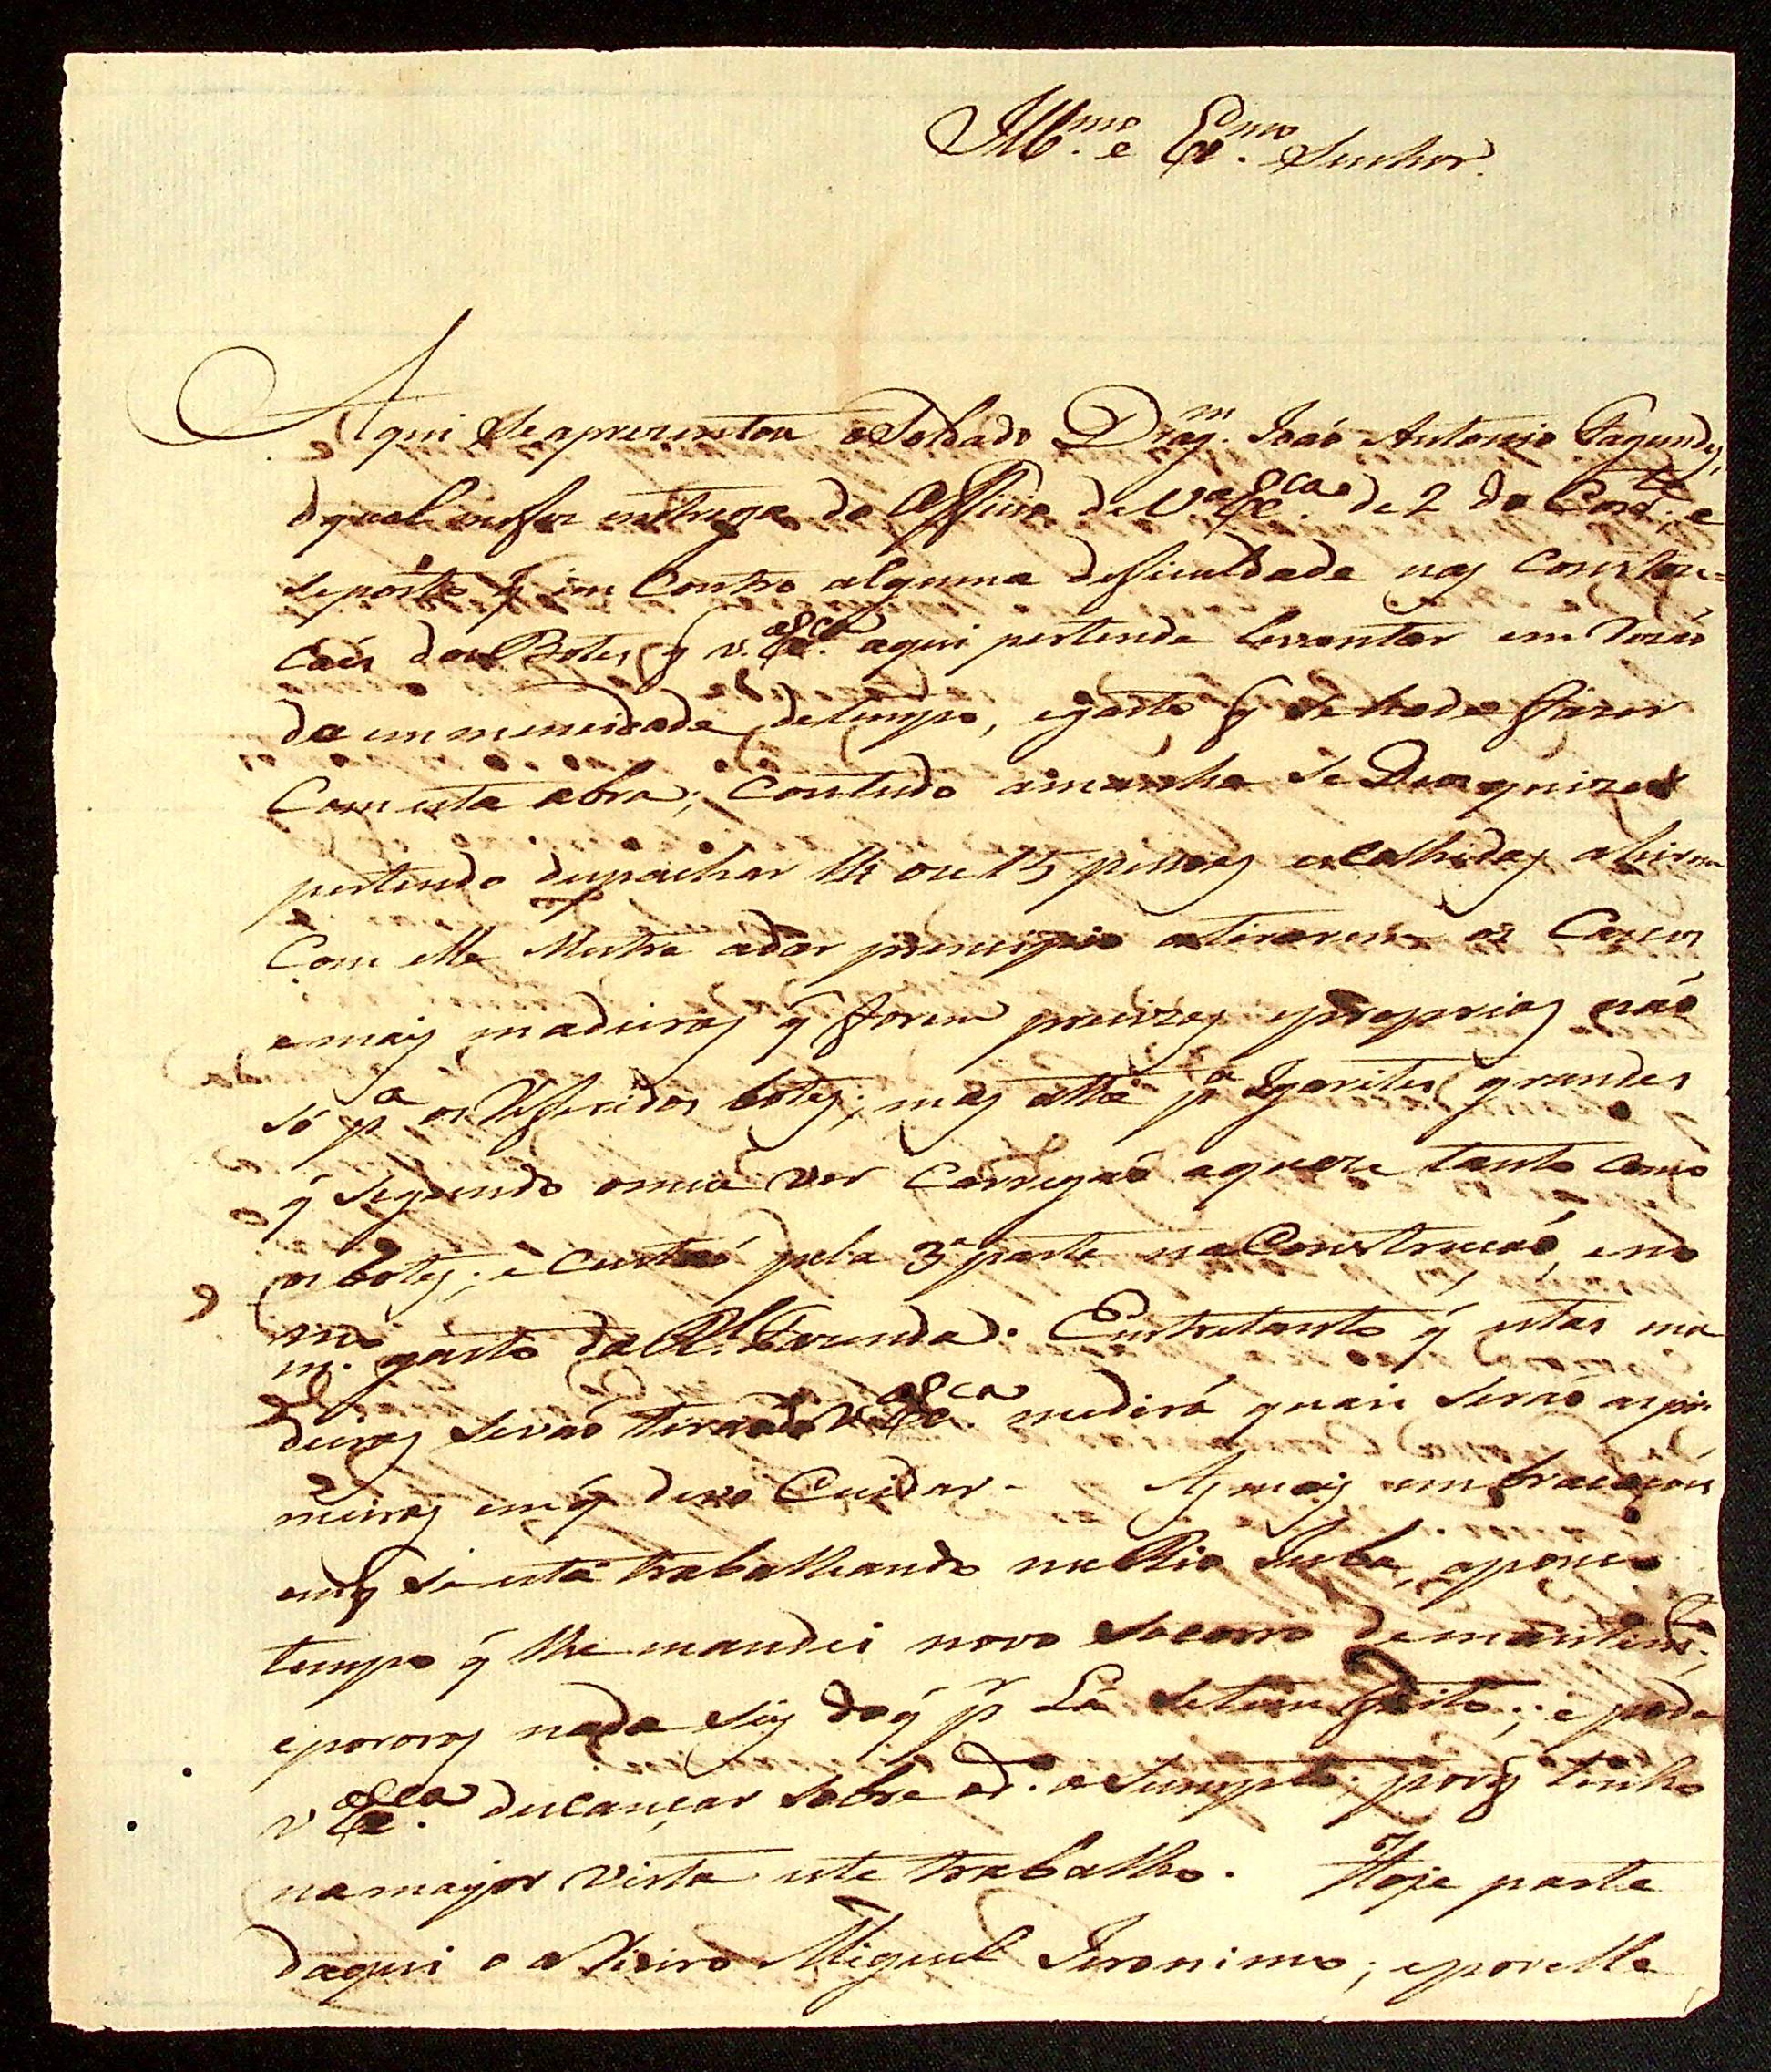 Ill.mo e Ex.mo Senhor.
Aqui Se aprezentou o Soldado Drag.m João Antonio Fagundes,
o qual me fez entrega do Officio de V.a Ex.ca de 2 do Corr.te, e
seposto q̃ em Contro alguma deficuldade nas Constru=
coins dos Botes q̃ v.a Ex.ca aqui pertende levantar em rezaõ
da emmencidade de tempo, e gasto q̃ se hade fazer
Com esta obra; Contudo amanha se Deos quizer
pertendo despachar 14 ou 15 pessoas escolhidas a hirem
Com elle Mestre a dar principio a tirarem os Cascos
e mais madeiras q̃ forem precizas e proprias naõ
só p.a os Referidos botes; mas athé p.a Igarites grandes
q̃ segundo o meu ver Carregaõ aquaze tanto como
os botes; e Custaõ pela 3.a parte na Construcaõ, e no
m.mo gasto da R.l Fazenda. Entretanto q̃ estas ma
deiras se vaõ tirando V.a Ex.ca me dirá quais seraõ as pri
meiras em q̃ devo Cuidar. As mais embracaçoins
em q̃ se está trabalhando no Rio Juba, a pouco
tempo q̃ lhe mandei novo Socorro de mantim.to,
e por oras nada sey do q̃ p.r Lá se tem feito; e pode
v.a Ex.ca descançar sobre o d.o asumpto; porq̃ tenho
na mayor vista este trabalho. Hoje parte
daqui o Miguel Jeronimo; e por elle